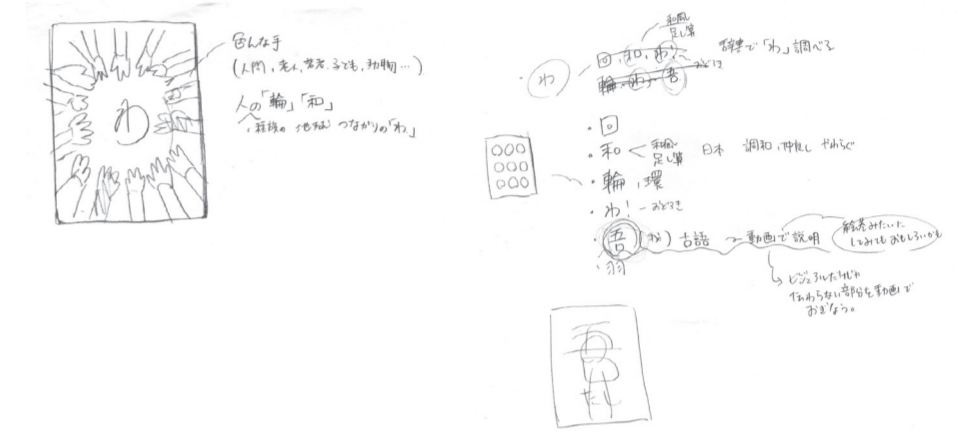 わ
色んな手
(人間、老人、若者、子ども、動物…)
人の「輪」「和」
つながりの「わ」
わ
和風
足し算
回、和、わ!
おどろき
輪
吾
辞典で「わ」調べる
・回
・和
和風
足し算
日本 調和、仲良し やわらぐ
・輪、環
・わ! ーおどろき
・吾(わ) 古語 〜動画で説明
絵巻みたいに
してみてもおもしろいかも
・羽
ビジュアルだけじゃ
伝わらない部分を動画で
おぎなう。